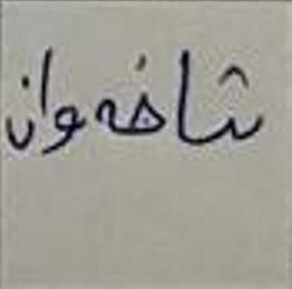 شاخەوان